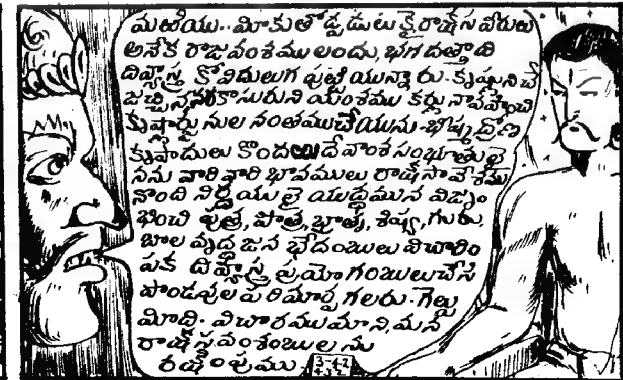 మఱియు.. మీకుతోడ్పడుటకై రాక్షస వీరులు
అనేక రాజవంశములందు, భగదత్తాది
దివ్యాస్త్ర కోవిదులుగ పుట్టియున్నారు. కృష్ణునిచే
జచ్చిన నరకాసురుని యంశము కర్ణు నావహించి
కృష్ణార్జునుల నంతముచేయును. భీష్మ ద్రోణ
కృపాదులు కొందఱు దేవాంశ సంభూతులై
నను వారి వారి భావములు రాక్షసావేశము
నొంది నిర్దయులై యుద్ధమున విజృం
భించి పుత్ర, పౌత్ర, భ్రాతృ, శిష్య, గురు,
బాల వృద్ధ జన భేదంబులు విచారిం
పక దివ్యాస్త్ర ప్రయోగంబులు చేసి
పాండవుల పరిమార్ప గలరు. గెల్పు
మీద్ది. విచారముమాని, మన
రాక్షస వంశంబులను
రక్షింపుము
3-42